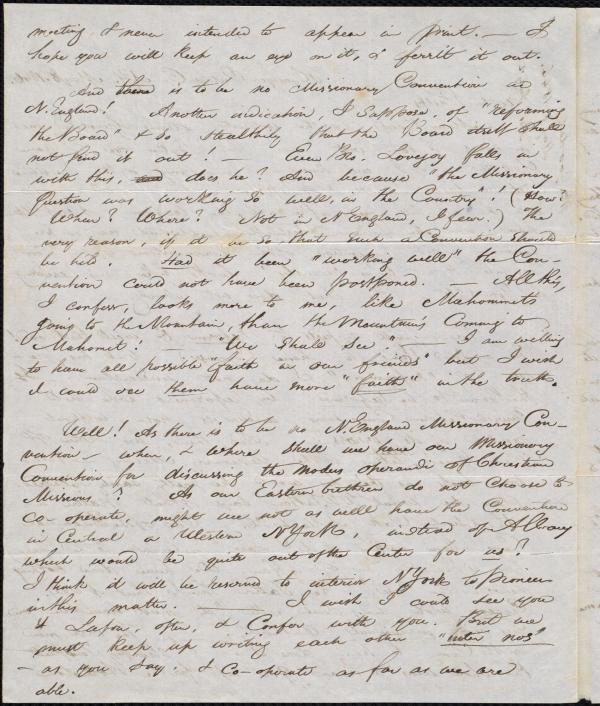 meeting & never intended to appear in print. — I
hope you will keep an eye on it, & ferrit it out.
And there is to be no Missionary Convention in
N. England! Another indication, I suppose, of "reforming
the Board" & so stealthily that the Board itself shall
not find it out! — Even Bro. Lovejoy falls in
with this, does he? And because "the Missionary
Question was working so well, in the Country"! (How?
When? Where? Not in N England, I fear.) The
very reason, if it be so that such a Convention should
be held. Had it been "working well" the Con-
vention could not have been postponed. — All this,
I confess, looks more to me, like Mahommet's
going to the Mountain, than the Mountain's coming to
Mahomet! — "We shall see." — I am willing
to have all possible "faith in our friends" but I wish
I could see them have more "faith" in the truth.
Well! As there is to be no N. England Missionary Con-
vention — when, & where shall we have our Missionary
Convention for discussing the modus operandi of Christian
Missions? As our Eastern brethren do not choose to
co-operate, might we not as well have the Convention
in Central or Western N York, instead of Albany
which would be quite out of the Center for us? —
I think it will be reserved to interior N York to pioneer
in this matter. — I wish I could see you
& Lapon, often, & confer with you. But we
must keep up writing each other "inter nos"
— as you say. & co-operate as far as we are
able.